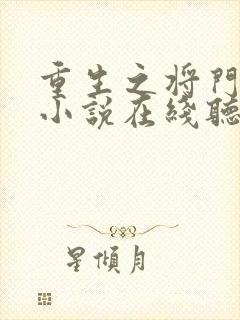 重生之将門
小説在綫聽
星傾月